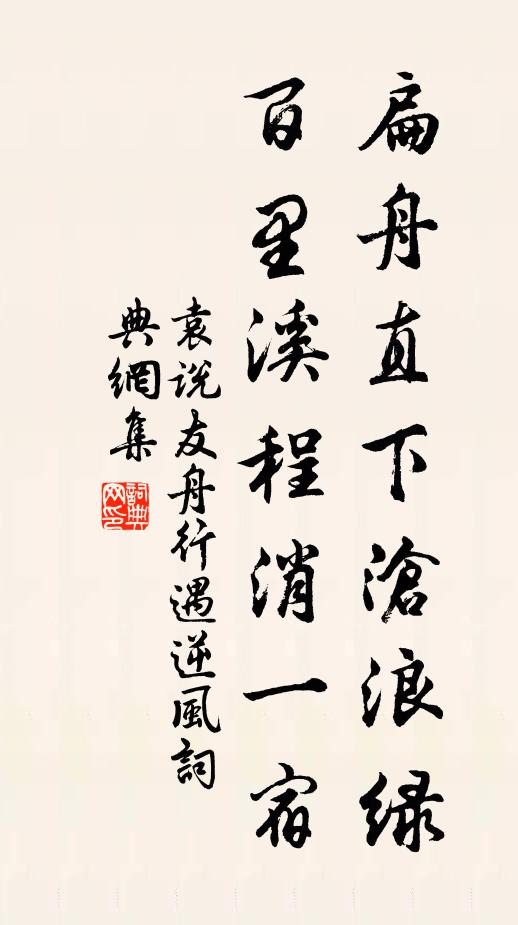 扁舟直下滄浪綠
百里溪程消一宿
袁说友舟行遇逆風詞
典網集
詞典网印